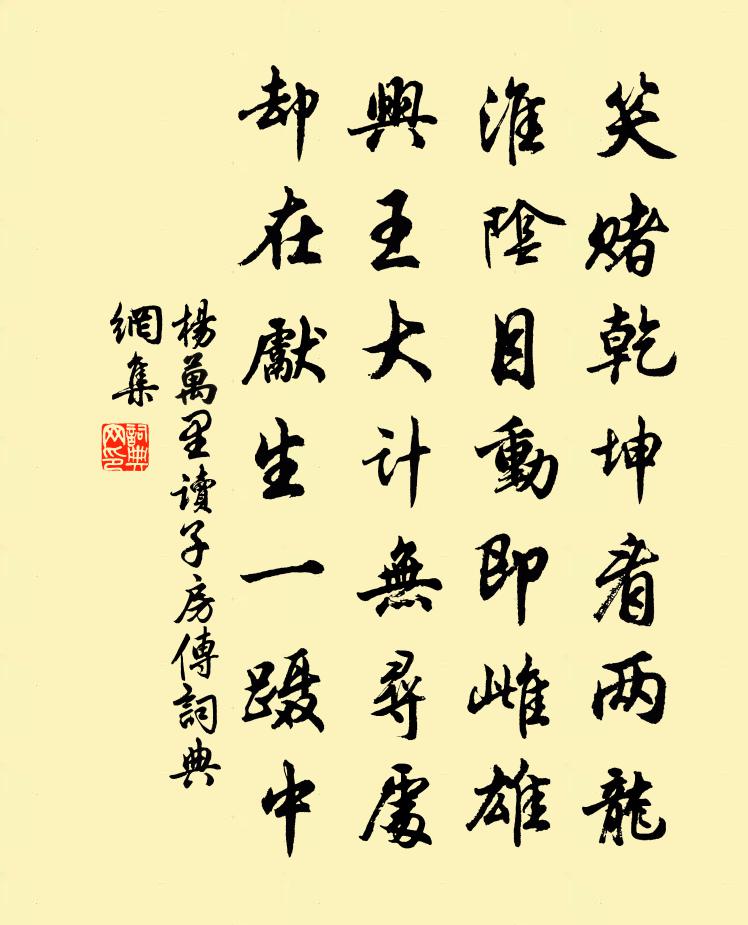 笑赌乾坤看两龍
淮陰目動即雌雄
興王大计無尋處
却在獻生一蹑中
楊萬里讀子房傳詞典
網集
詞典
网印